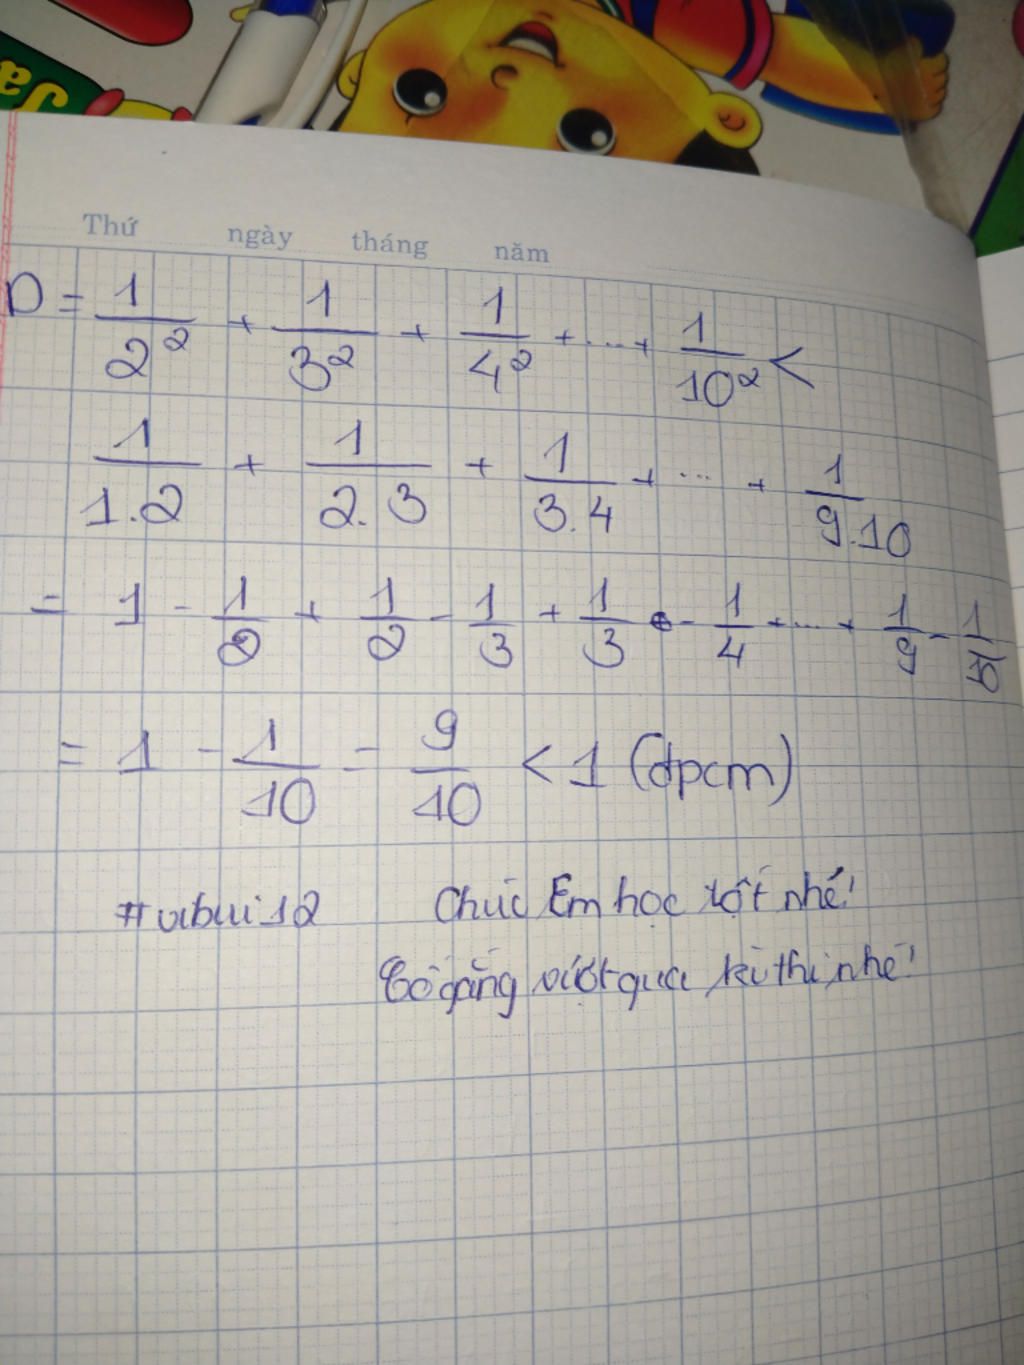 Ja
Thứ ngày tháng năm
D = 1/2² + 1/3² + 1/4² + ... + 1/10² <
1/1.2 + 1/2.3 + 1/3.4 + ... + 1/9.10
= 1 - 1/2 + 1/2 - 1/3 + 1/3 - 1/4 + ... + 1/9 - 1/10
= 1 - 1/10 = 9/10 < 1 (đpcm)
#vbui12 Chúc Em học tốt nhé!
Cố gắng vượt qua kì thi nhé!